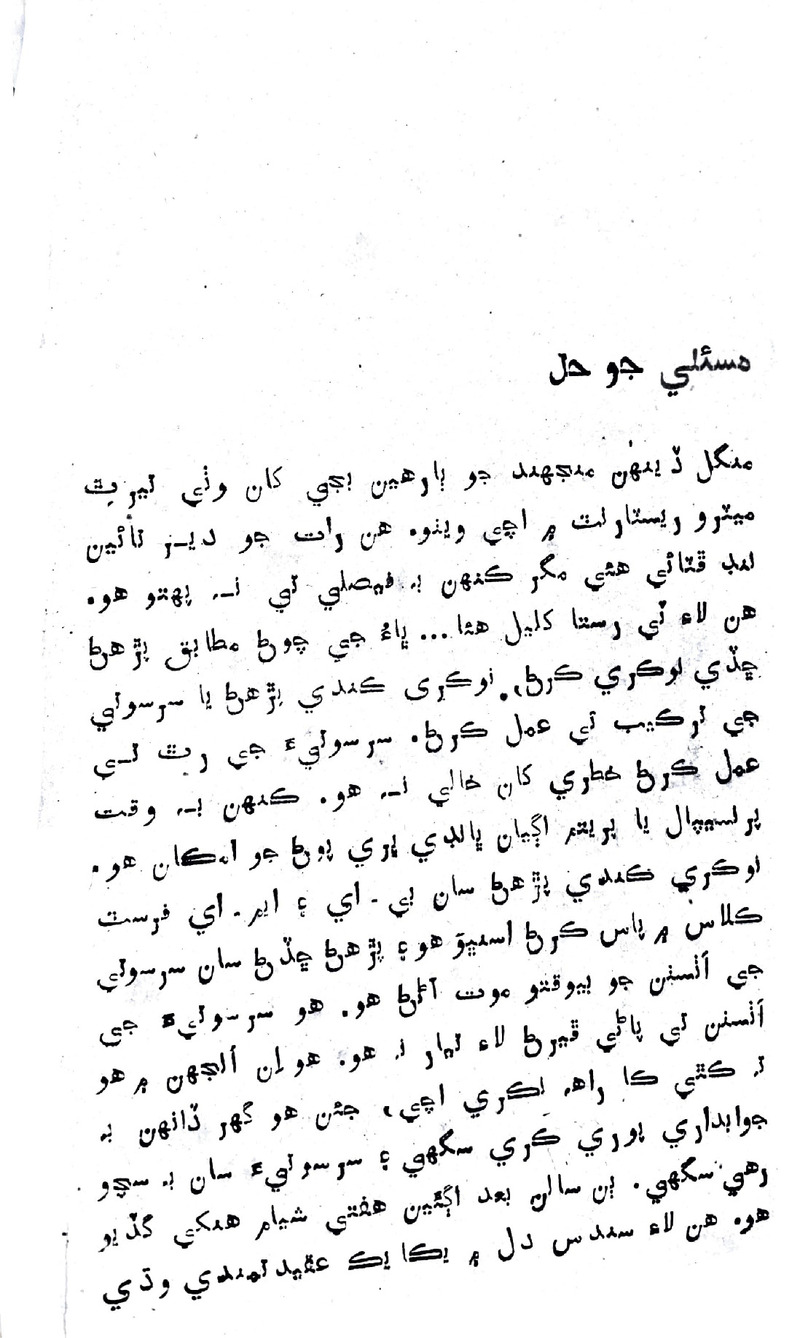 مسئلي جو حل
منگل ڏينهن منجهند جو ٻارهين بجي کان وٺي تيرٿ
ميٽرو ريسٽارنٽ ۾ اچي ويٺو. هن رات جو دير تائين
ننڊ ڦٽائي هئي مگر ڪنهن بہ فيصلي تي نہ پهتو هو.
هن لاءِ ٽي رستا کليل هئا... ڀاءُ جي چوڻ مطابق پڙهڻ
ڇڏي نوڪري ڪرڻ، نوڪري ڪندي پڙهڻ يا سرسوتي
جي ترڪيب تي عمل ڪرڻ. سرسوتيءَ جي رٿ تي
عمل ڪرڻ خطري کان خالي نہ هو. ڪنهن بہ وقت
پرنسيپال يا پريتم اڳيان پالڊي ڀري پوڻ جو امڪان هو.
نوڪري ڪندي پڙهڻ سان بي. اي ۽ ايم. اي فرسٽ
ڪلاس ۾ پاس ڪرڻ اسنڀوَ هو ۽ پڙهڻ ڇڏڻ سان سرسوتي
جي اُتسنن جو بيوقتو موت آڻڻ هو. هو سرسوتيءَ جي
اُتسنن تي پاڻي ڦيرڻ لاءِ تيار نہ هو. هو اِن اُلجهن ۾ هو
تہ ڪٿي ڪا راهہ نڪري اچي، جئن هو گهر ڏانهن بہ
جوابداري پوري ڪري سگهي ۽ سرسوتيءَ سان بہ سچو
رهي سگهي. ٻن سالن بعد اڳئين هفتي شيام هنکي گڏيو
هو. هن لاءِ سندس دل ۾ يڪايڪ عقيدتمندي وڌي